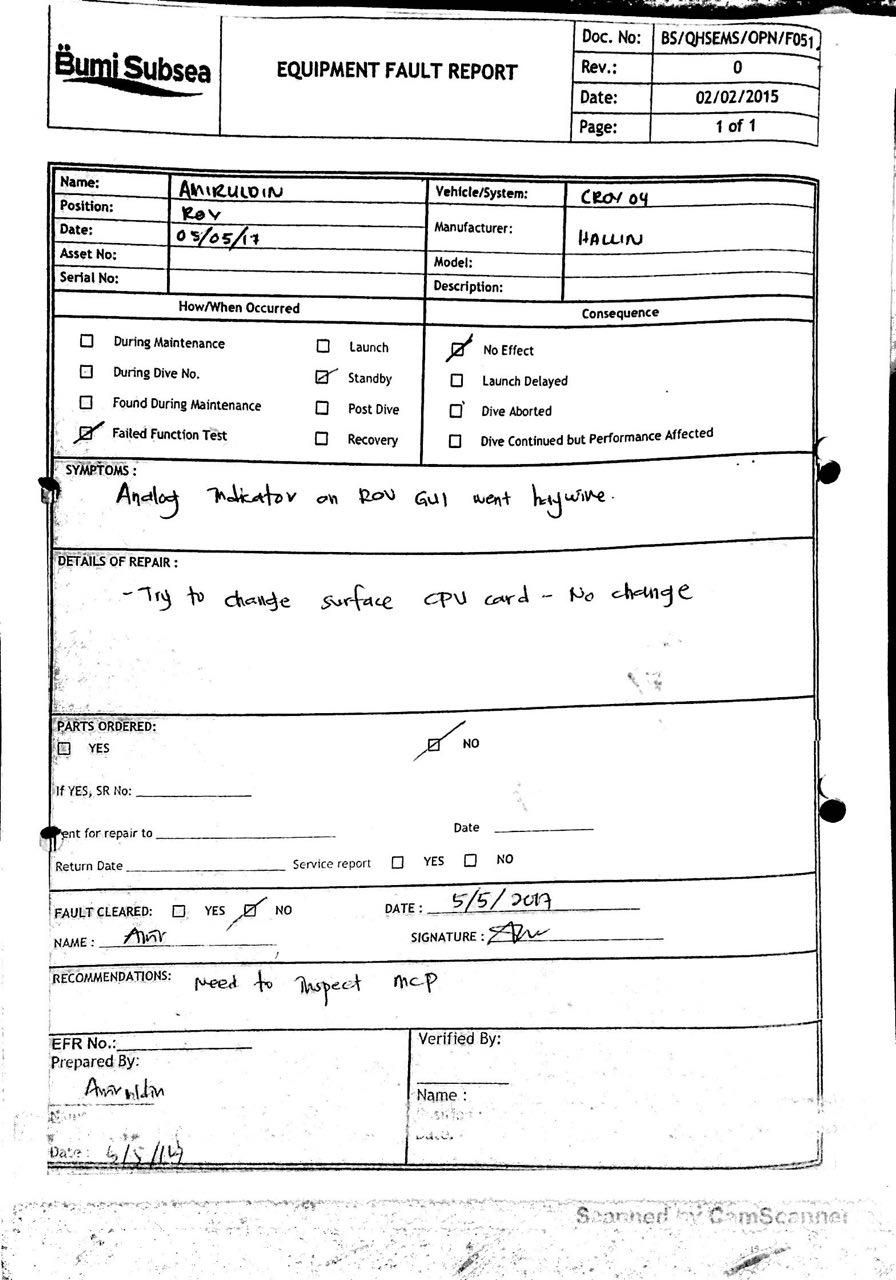 Bumi Subsea
EQUIPMENT FAULT REPORT
Doc. No: BS/QHSEMS/OPN/F051
Rev.: 0
Date: 02/02/2015
Page: 1 of 1
Name: AMIRULDIN
Vehicle/System: CROV 04
Position: ROV
Date: 05/05/17
Manufacturer: HALLIN
Asset No:
Model:
Serial No:
Description:
How/When Occurred
Consequence
During Maintenance
Launch
No Effect
During Dive No.
Standby
Launch Delayed
Found During Maintenance
Post Dive
Dive Aborted
Failed Function Test
Recovery
Dive Continued but Performance Affected
SYMPTOMS :
Analog Indicator on ROV GUI went haywire.
DETAILS OF REPAIR :
- Try to change surface CPU card - No change
PARTS ORDERED:
YES NO
If YES, SR No:
ent for repair to Date
Return Date Service report YES NO
FAULT CLEARED: YES NO DATE : 5/5/2017
NAME : Amir SIGNATURE :
RECOMMENDATIONS: Need to Inspect MCP
EFR No.:
Verified By:
Prepared By:
Amiruldin
Name :
Date :
Scanned by CamScanner